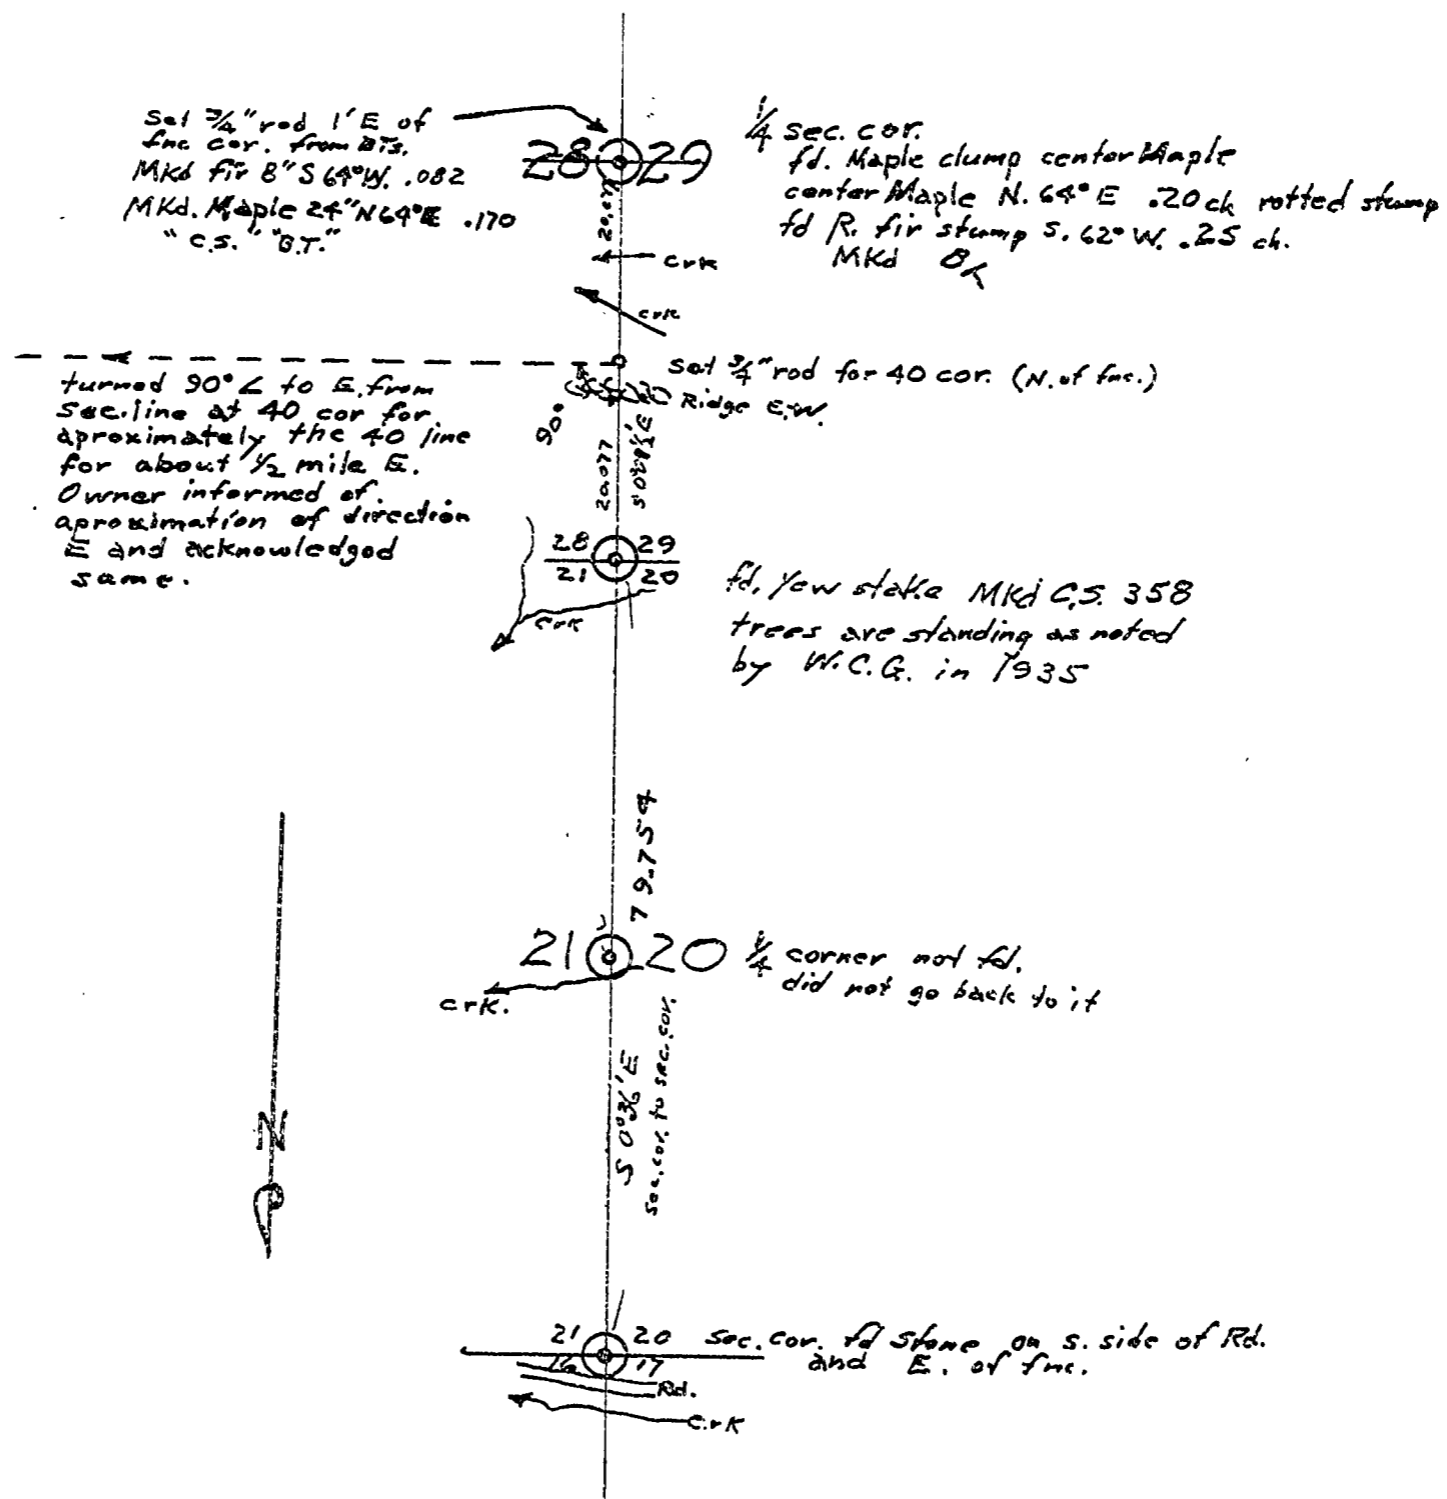 Set 3/4" rod 1' E of
fnc cor. from BTs.
Mkd fir 8" S 64° W. .082
MKd. Maple 24" N 64° E .170
"C.S." "B.T."
28 29
1/4 sec. cor.
fd. Maple clump center Maple
center Maple N. 64° E .20 ch rotted stump
fd R. fir stump S. 62° W. .25 ch.
MKd
20.077
crk
crk
Set 3/4" rod for 40 cor. (N. of fnc.)
Ridge E.W.
90°
turned 90° ∠ to E. from
sec. line at 40 cor for
aproximately the 40 line
for about 1/2 mile E.
Owner informed of
aproximation of direction
E and acknowledged
same.
20.077
28 29
21 20
crk
fd. yew stake MKd C.S. 358
trees are standing as noted
by W.C.G. in 1935
79.754
21 20
1/4 corner not fd.
did not go back to it
crK.
S 0°36' E
sec. cor. to sec. cor.
N
21 20
16 17
sec. cor. fd stone on s. side of Rd.
and E. of fnc.
Rd.
crK